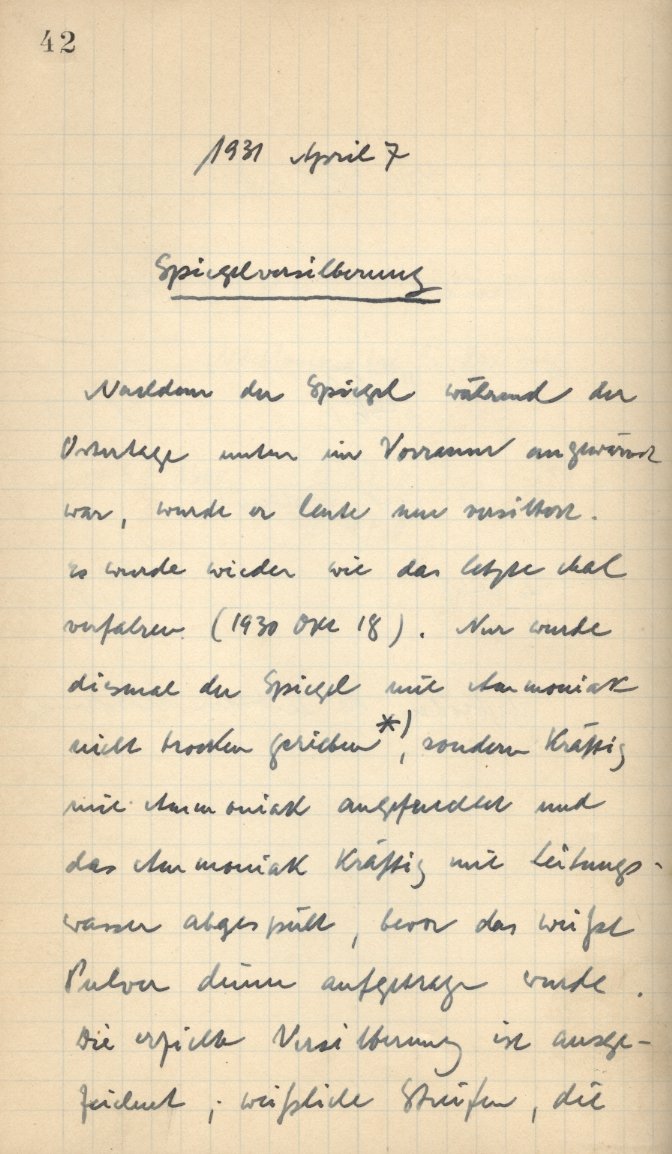 42
1931 April 7
Spiegelversilberung
Nachdem der Spiegel während der
Ostertage unten im Vorraum angewärmt
war, wurde er heute neu versilbert.
Es wurde wieder wie das letzte Mal
verfahren (1930 Okt 18). Nur wurde
diesmal der Spiegel mit Ammoniak
nicht trocken gerieben *), sondern kräftig
mit Ammoniak angefeuchtet und
das Ammoniak kräftig mit Leitungs-
wasser abgespült, bevor das weiße
Pulver dünn aufgetragen wurde.
Die erzielte Versilberung ist ausge-
zeichnet; weißliche Streifen, die